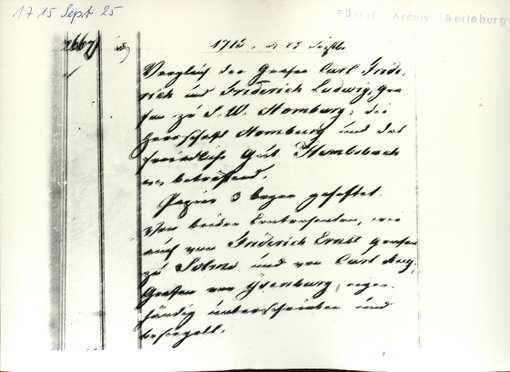 17 15 Sept 25
Fürstl. Archiv Berleburg
2667
1715. d. 25 Septb.
Vergleich der Grafen Carl Fride-
rich und Friderich Ludwig, Gra-
fen zu S. W. Homburg, die
Herrschaft Homburg und das
freiadliche Gut Hembsbach
betreffend.
Papier 3 bogen geheftet.
Von beiden Contrahenten, wie
auch von Friderich Ernst Grafen
zu Solms und von Carl Aug.
Grafen von Ysenburg, eigen-
händig unterschrieben und
besiegelt.